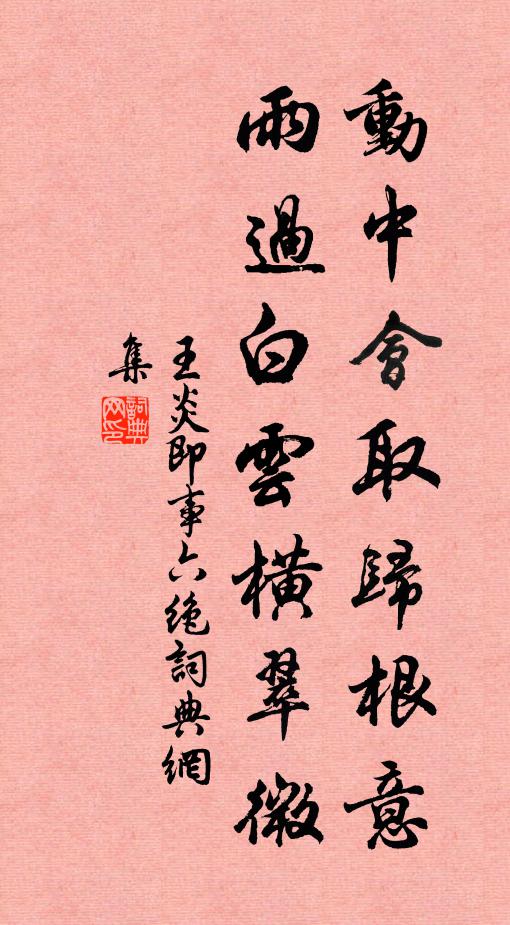 動中會取歸根意
雨過白雲橫翠微
王炎即事六絶詞典網
集
詞典網印